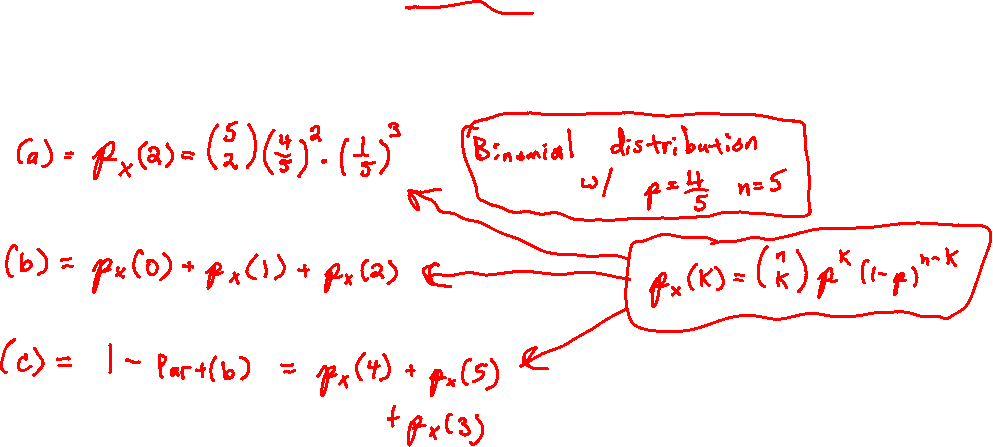 (a) = p_x(2) = (5 2)(4/5)^2 · (1/5)^3
Binomial distribution
w/ p = 4/5 n=5
(b) = p_x(0) + p_x(1) + p_x(2)
p_x(k) = (n k) p^k (1-p)^{n-k}
(c) = 1 - Part(b) = p_x(4) + p_x(5)
+ p_x(3)